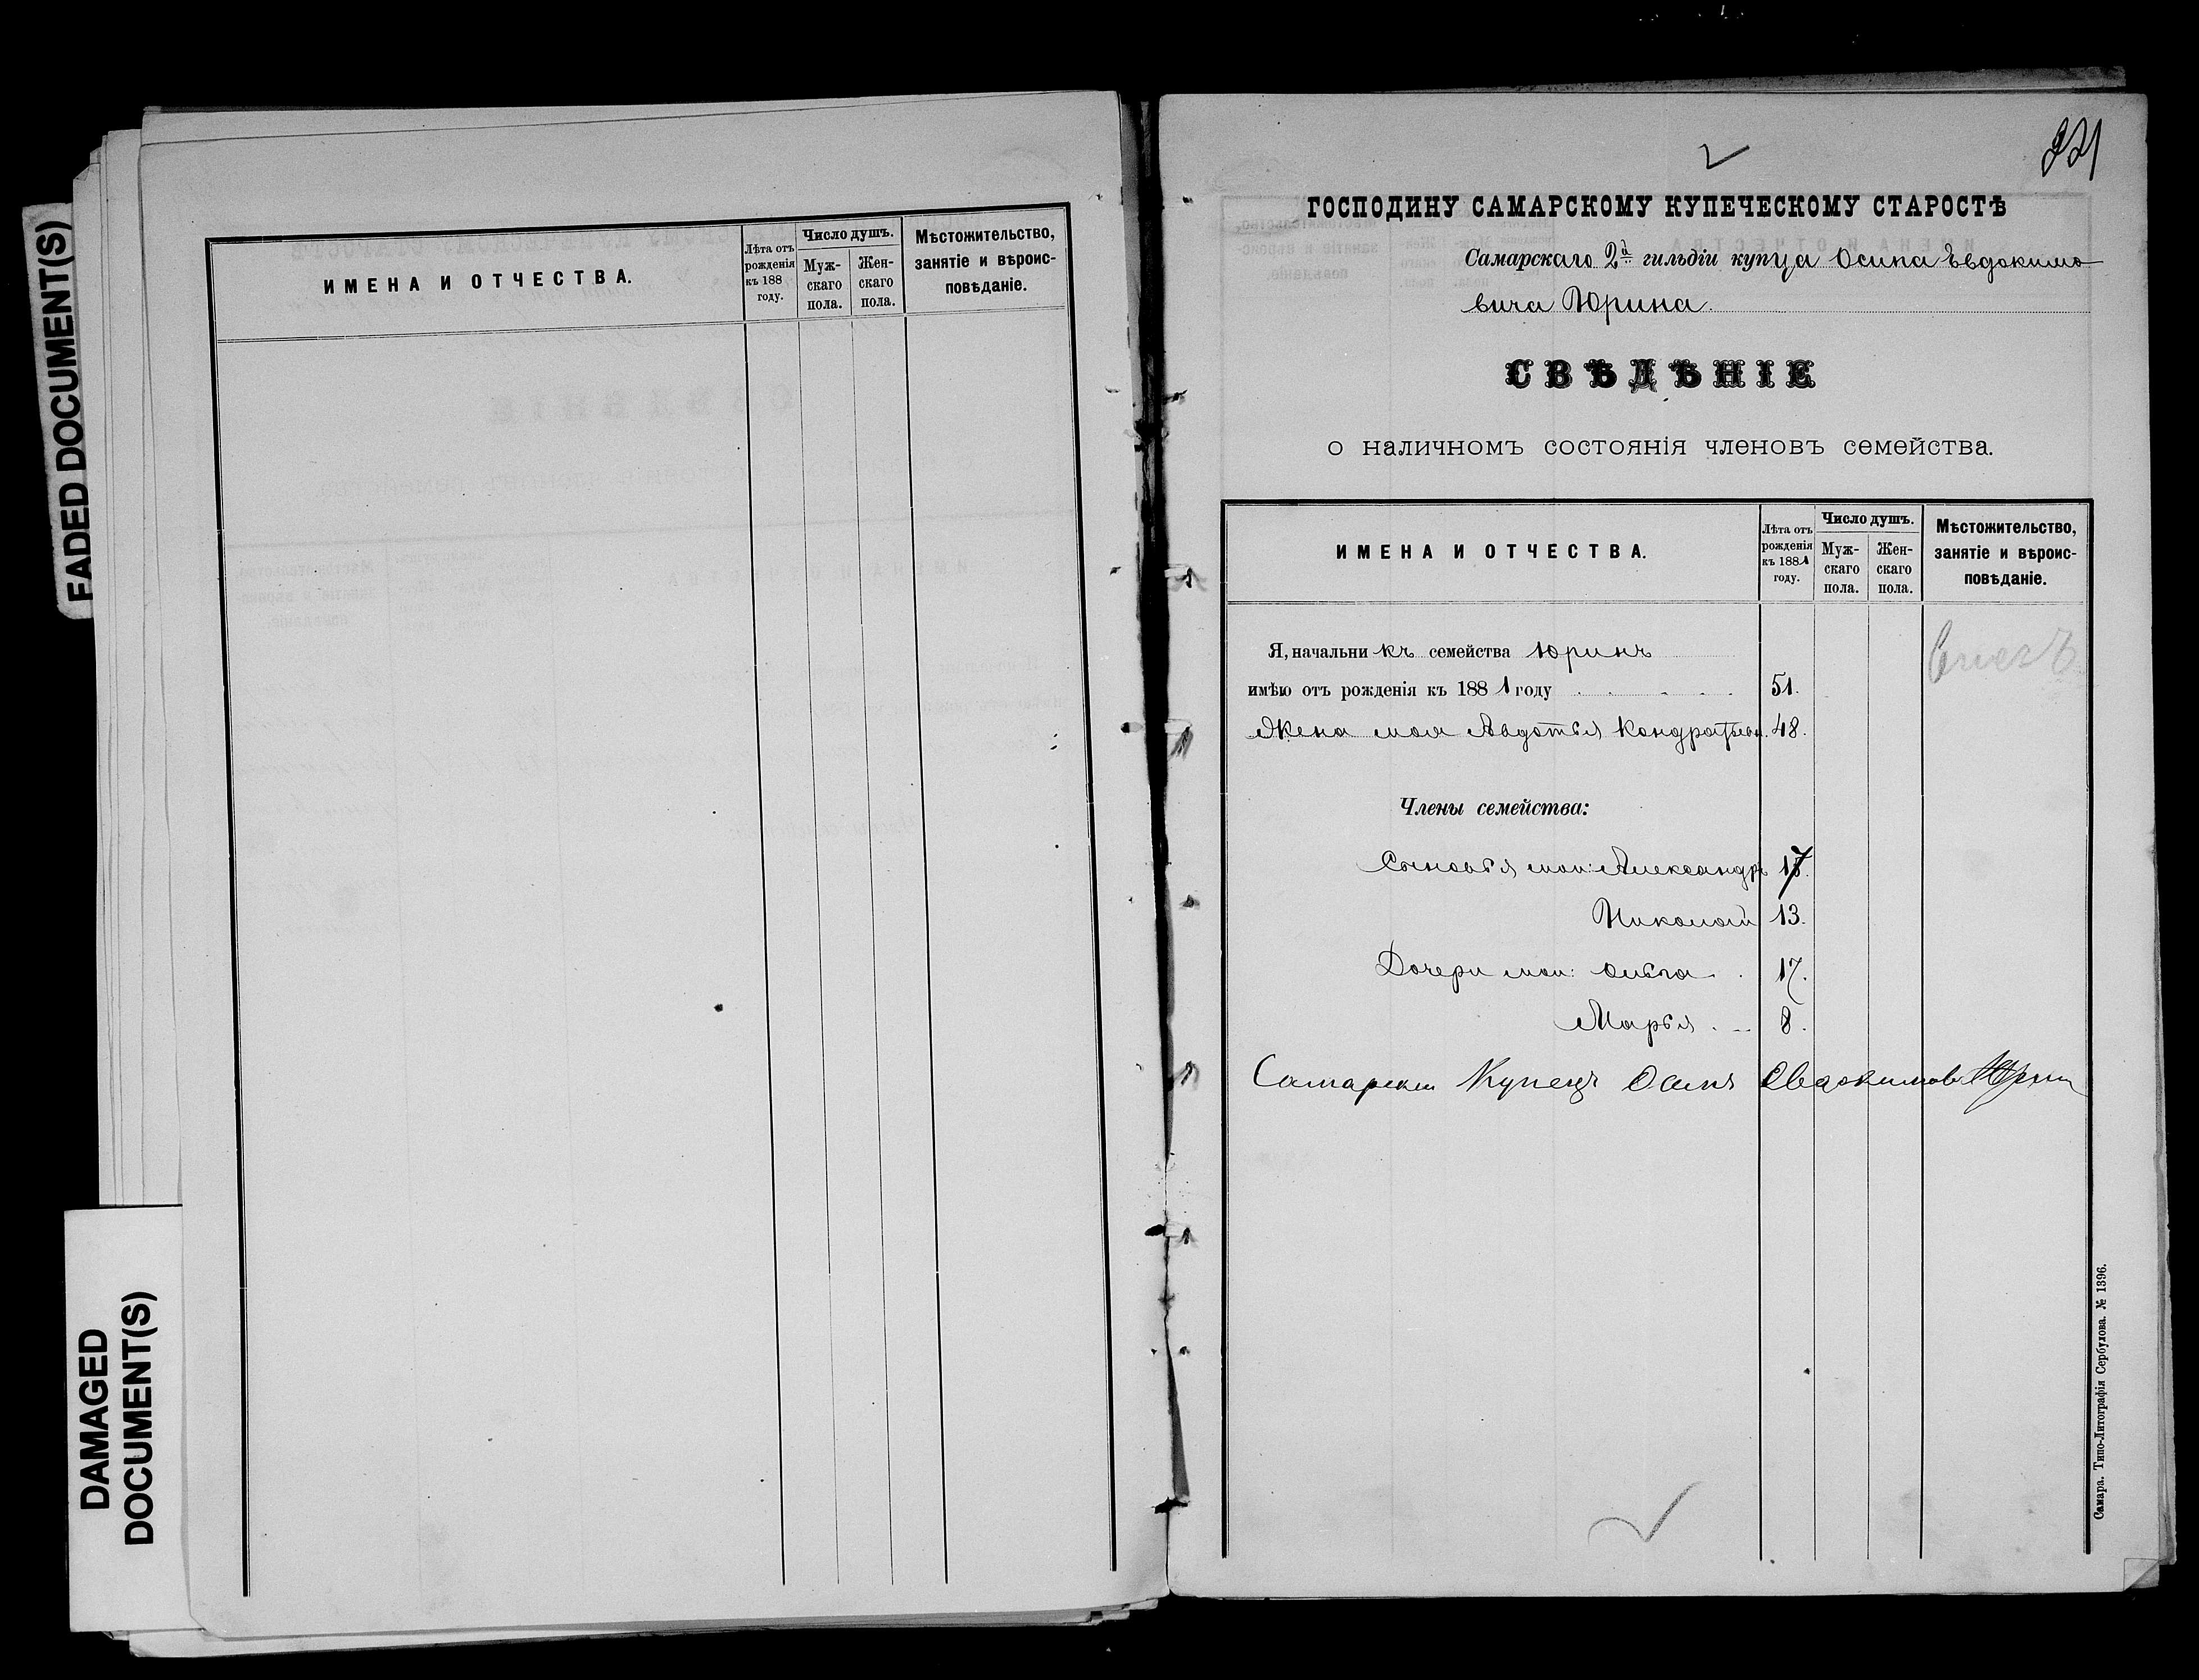 FADED DOCUMENT(S)
DAMAGED
DOCUMENT(S)
ИМЕНА И ОТЧЕСТВА.
Лѣта отъ
рожденія
къ 188
году.
Число душъ.
Муж-
скаго
пола.
Жен-
скаго
пола.
Мѣстожительство,
занятіе и вѣроис-
повѣданіе.
ГОСПОДИНУ САМАРСКОМУ КУПЕЧЕСКОМУ СТАРОСТѢ
Самарскаго 2й гильдіи купца Осипа Евдокимо
вича Юрина.
СВѢДѢНІЕ
о наличномъ состоянія членовъ семейства.
ИМЕНА И ОТЧЕСТВА.
Лѣта отъ
рожденія
къ 1881
году.
Число душъ.
Муж-
скаго
пола.
Жен-
скаго
пола.
Мѣстожительство,
занятіе и вѣроис-
повѣданіе.
Я, начальникъ семейства Юринъ
имѣю отъ рожденія къ 1881 году 51.
Жена моя Авдотья Кондратьевн. 48.
Члены семейства:
Сыновья мои: Александръ 17.
Николай 13.
Дочери мои: Ольга 17.
Марья 8.
Самарски Купецъ Осипъ Евдокимовъ Юрин
Самара. Типо-Литографія Сербулова. № 1396.